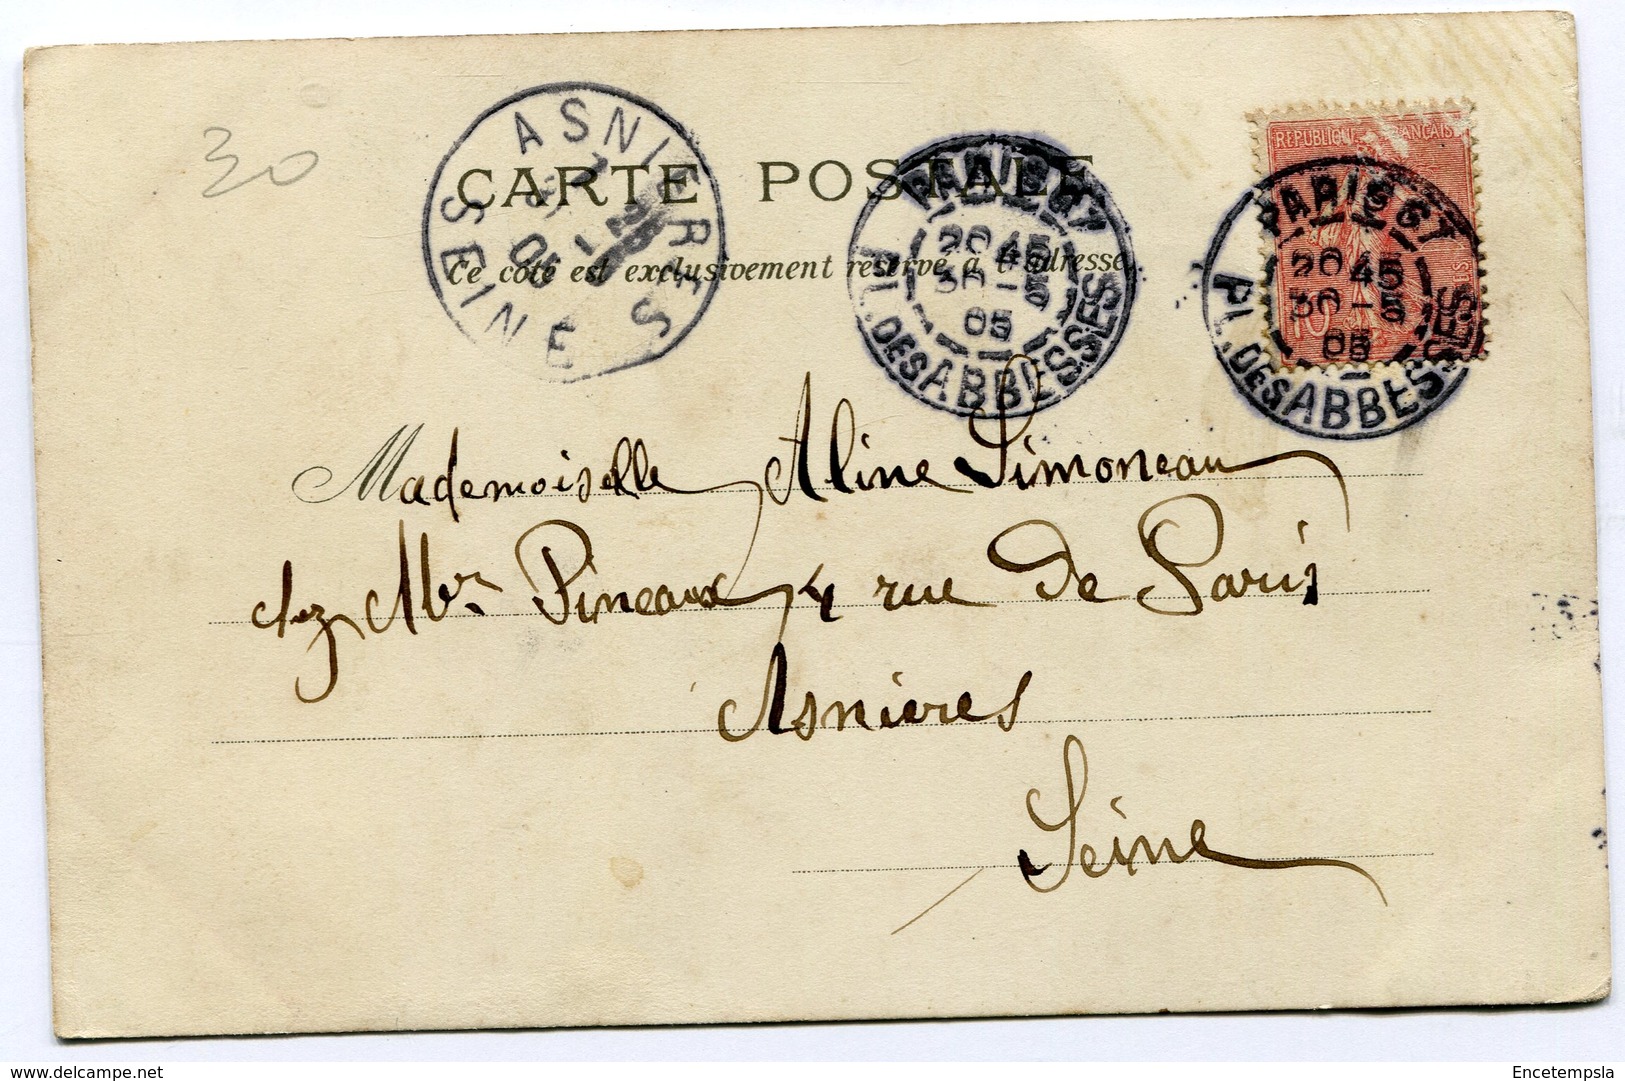 30
ASNIÈRES
SEINE
CARTE POSTALE
Ce côté est exclusivement réservé à l'adresse.
PARIS 67
20 45
30 - 5
05
PL. DES ABBESSES
RÉPUBLIQUE FRANÇAISE
10
PARIS 67
20 45
30 - 5
05
PL. DES ABBESSES
Mademoiselle Aline Simoneau
chez Mr Pineaux 4 rue de Paris
Asnières
Seine
delcampe.net
Encetempsla